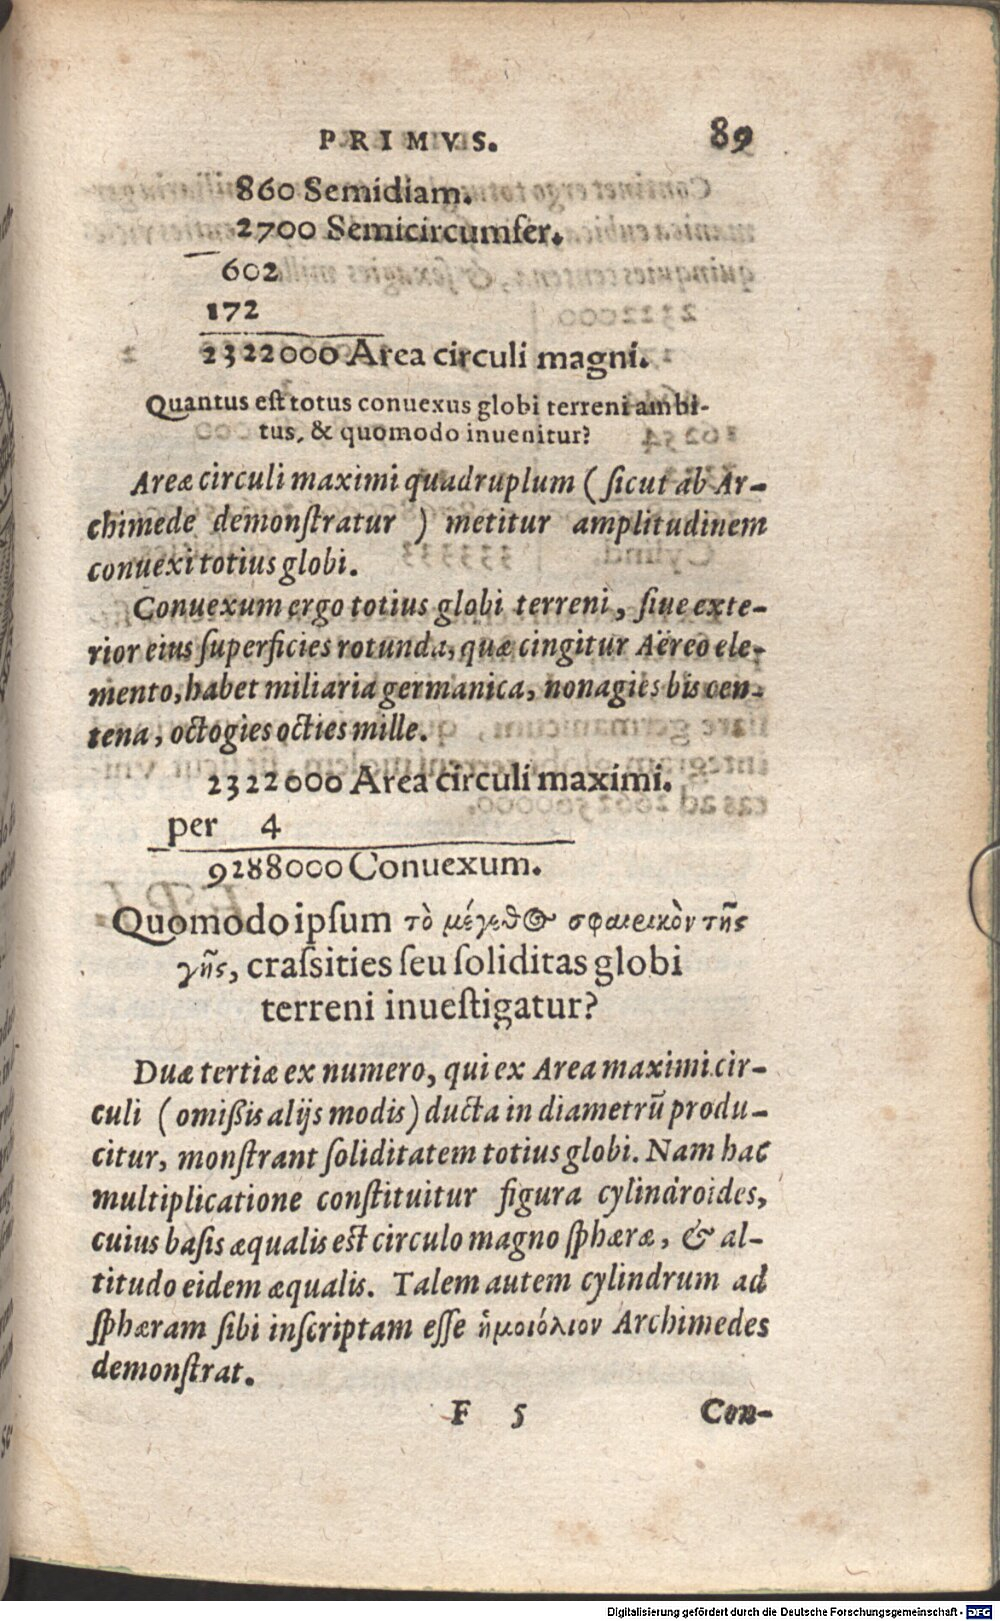 PRIMVS. 89
860 Semidiam.
2700 Semicircumfer.
602
172
2322000 Area circuli magni.
Quantus eſt totus conuexus globi terreni ambi-
tus, & quomodo inuenitur?
Areæ circuli maximi quadruplum ( ſicut ab Ar-
chimede demonſtratur ) metitur amplitudinem
conuexi totius globi.
Conuexum ergo totius globi terreni, ſiue exte-
rior eius ſuperficies rotunda, quæ cingitur Aëreo ele-
mento, habet miliaria germanica, nonagies bis cen-
tena, octogies octies mille.
2322000 Area circuli maximi.
per 4
9288000 Conuexum.
Quomodo ipſum τὸ μέγεθος σφαιρικὸν τῆς
γῆς, craſsities ſeu ſoliditas globi
terreni inueſtigatur?
Duæ tertiæ ex numero, qui ex Area maximi cir-
culi (omiſsis alijs modis) ducta in diametrū produ-
citur, monſtrant ſoliditatem totius globi. Nam hac
multiplicatione conſtituitur figura cylindroides,
cuius baſis æqualis eſt circulo magno ſphæræ, & al-
titudo eidem æqualis. Talem autem cylindrum ad
ſphæram ſibi inſcriptam eſſe ἡμοιόλιον Archimedes
demonſtrat.
F 5 Con-
Digitalisierung gefördert durch die Deutsche Forschungsgemeinschaft - DFG